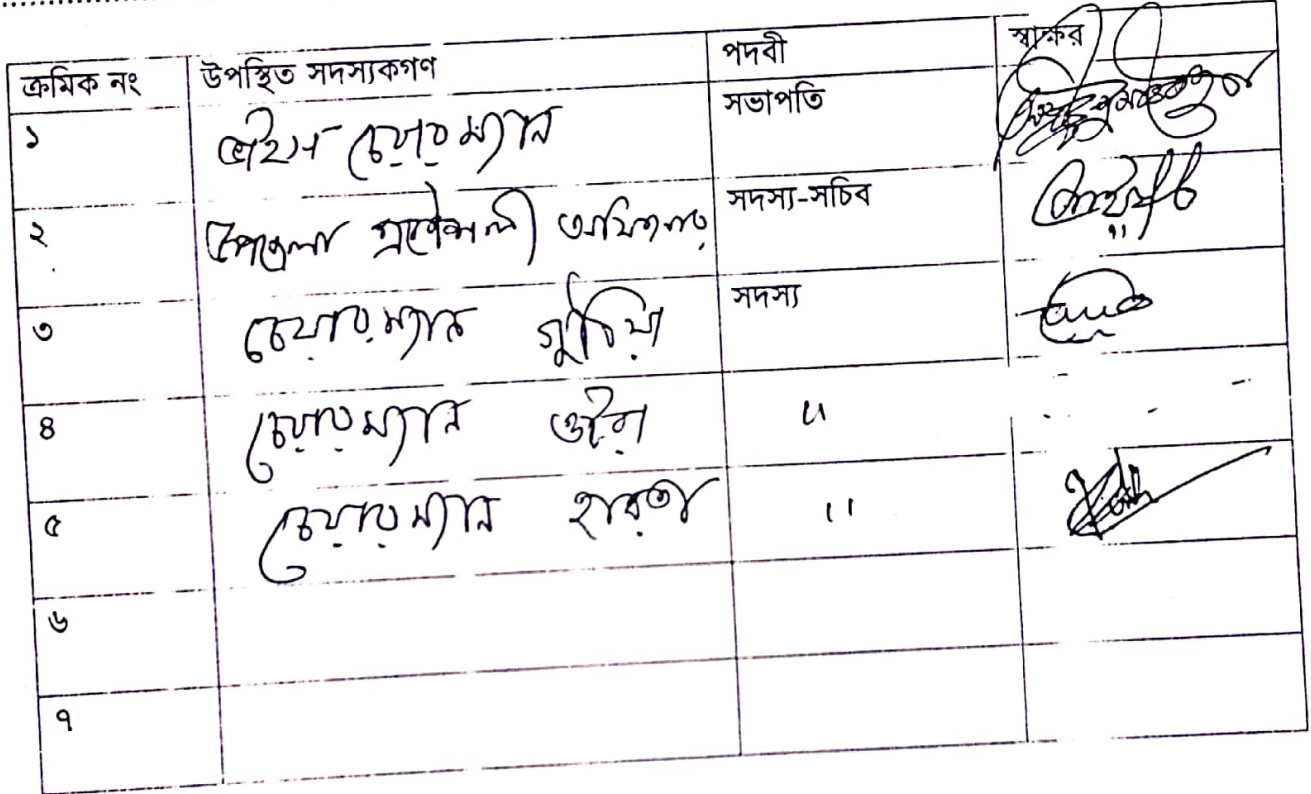 ক্রমিক নং উপস্থিত সদস্যকগণ পদবী স্বাক্ষর
১ ভাইস চেয়ারম্যান সভাপতি
২ উপজেলা প্রকৌশলী অফিসার সদস্য-সচিব
৩ চেয়ারম্যান গুঠিয়া সদস্য
৪ চেয়ারম্যান ওটরা "
৫ চেয়ারম্যান হারতা "
৬
৭